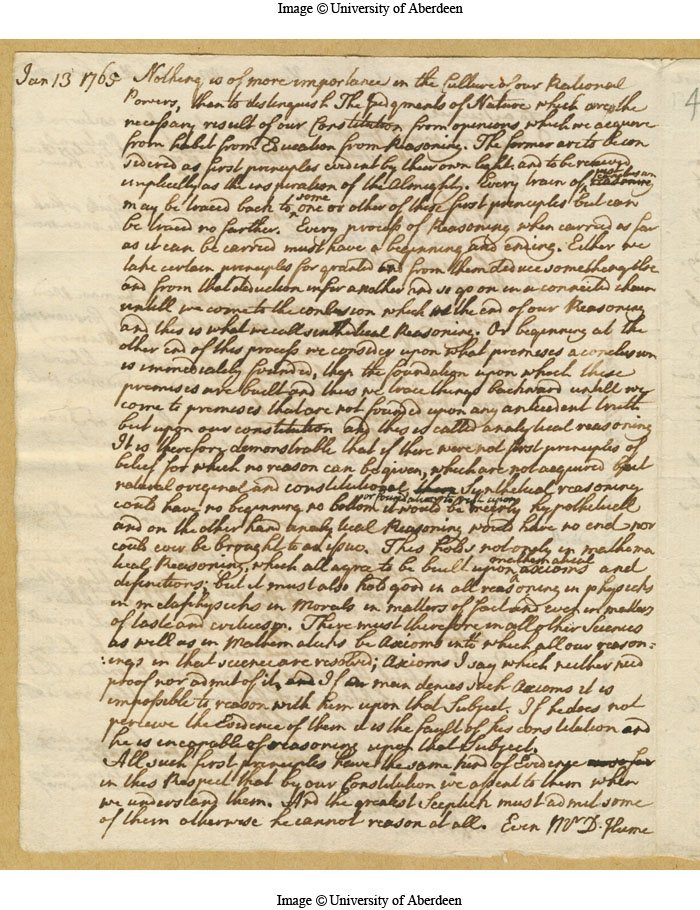 Image © University of Aberdeen
Jan 13 1765 Nothing is of more importance in the Culture of our Rational
Powers, than to distinguish The Judgments of Nature which are the
necessary result of our Constitution from opinions which we acquire
from habit from Education from Reasoning. The former are to be con
sidered as first principles evident by their own light and to be received
implicitly as the inspiration of the Almighty. Every train of reasoning
may be traced back to some one or other of these first principles but can
be traced no farther. Every process of Reasoning when carried as far
as it can be carried must have a beginning and ending. Either we
take certain principles for granted and from them deduce something else
and from that deduction infer another and so go on in a connected chain
untill we come to the conclusion which is the end of our Reasoning
and this is what we call synthetical Reasoning. Or beginning at the
other end of this process we consider upon what premises a conclusion
is immediately founded, then the foundation upon which these
premises are built and thus we trace things backward untill we
come to premises that are not founded upon any antecedent truth
but upon our constitution and this is called analytical reasoning
It is therefore demonstrable that if there were not first principles of
belief for which no reason can be given, which are not acquired but
natural original and constitutional, Synthetical reasoning
or foundation to rest upon
could have no beginning no bottom it would be meerly hypothetical
and on the other hand analytical Reasoning would have no end nor
could ever be brought to an issue. This holds not only in mathema
tical Reasoning, which all agree to be built upon mathematical axioms and
definitions: but it must also hold good in all reasoning in physicks
in metaphysicks in Morals in matters of fact and even in matters
of taste and criticism. There must therefore in all other Sciences
as well as in Mathematicks be Axioms into which all our reason:
:ings in that science are resolved; Axioms I say which neither need
proof nor admit of it, and If a man denies such Axioms it is
impossible to reason with him upon that Subject. If he does not
perceive the Evidence of them it is the fault of his constitution and
he is incapable of reasoning upon that Subject.
All such first principles have the same kind of Evidence
in this Respect that by our Constitution we assent to them when
we understand them. And the greatest Sceptick must admit some
of them otherwise he cannot reason at all. Even Mr D. Hume
4
Image © University of Aberdeen